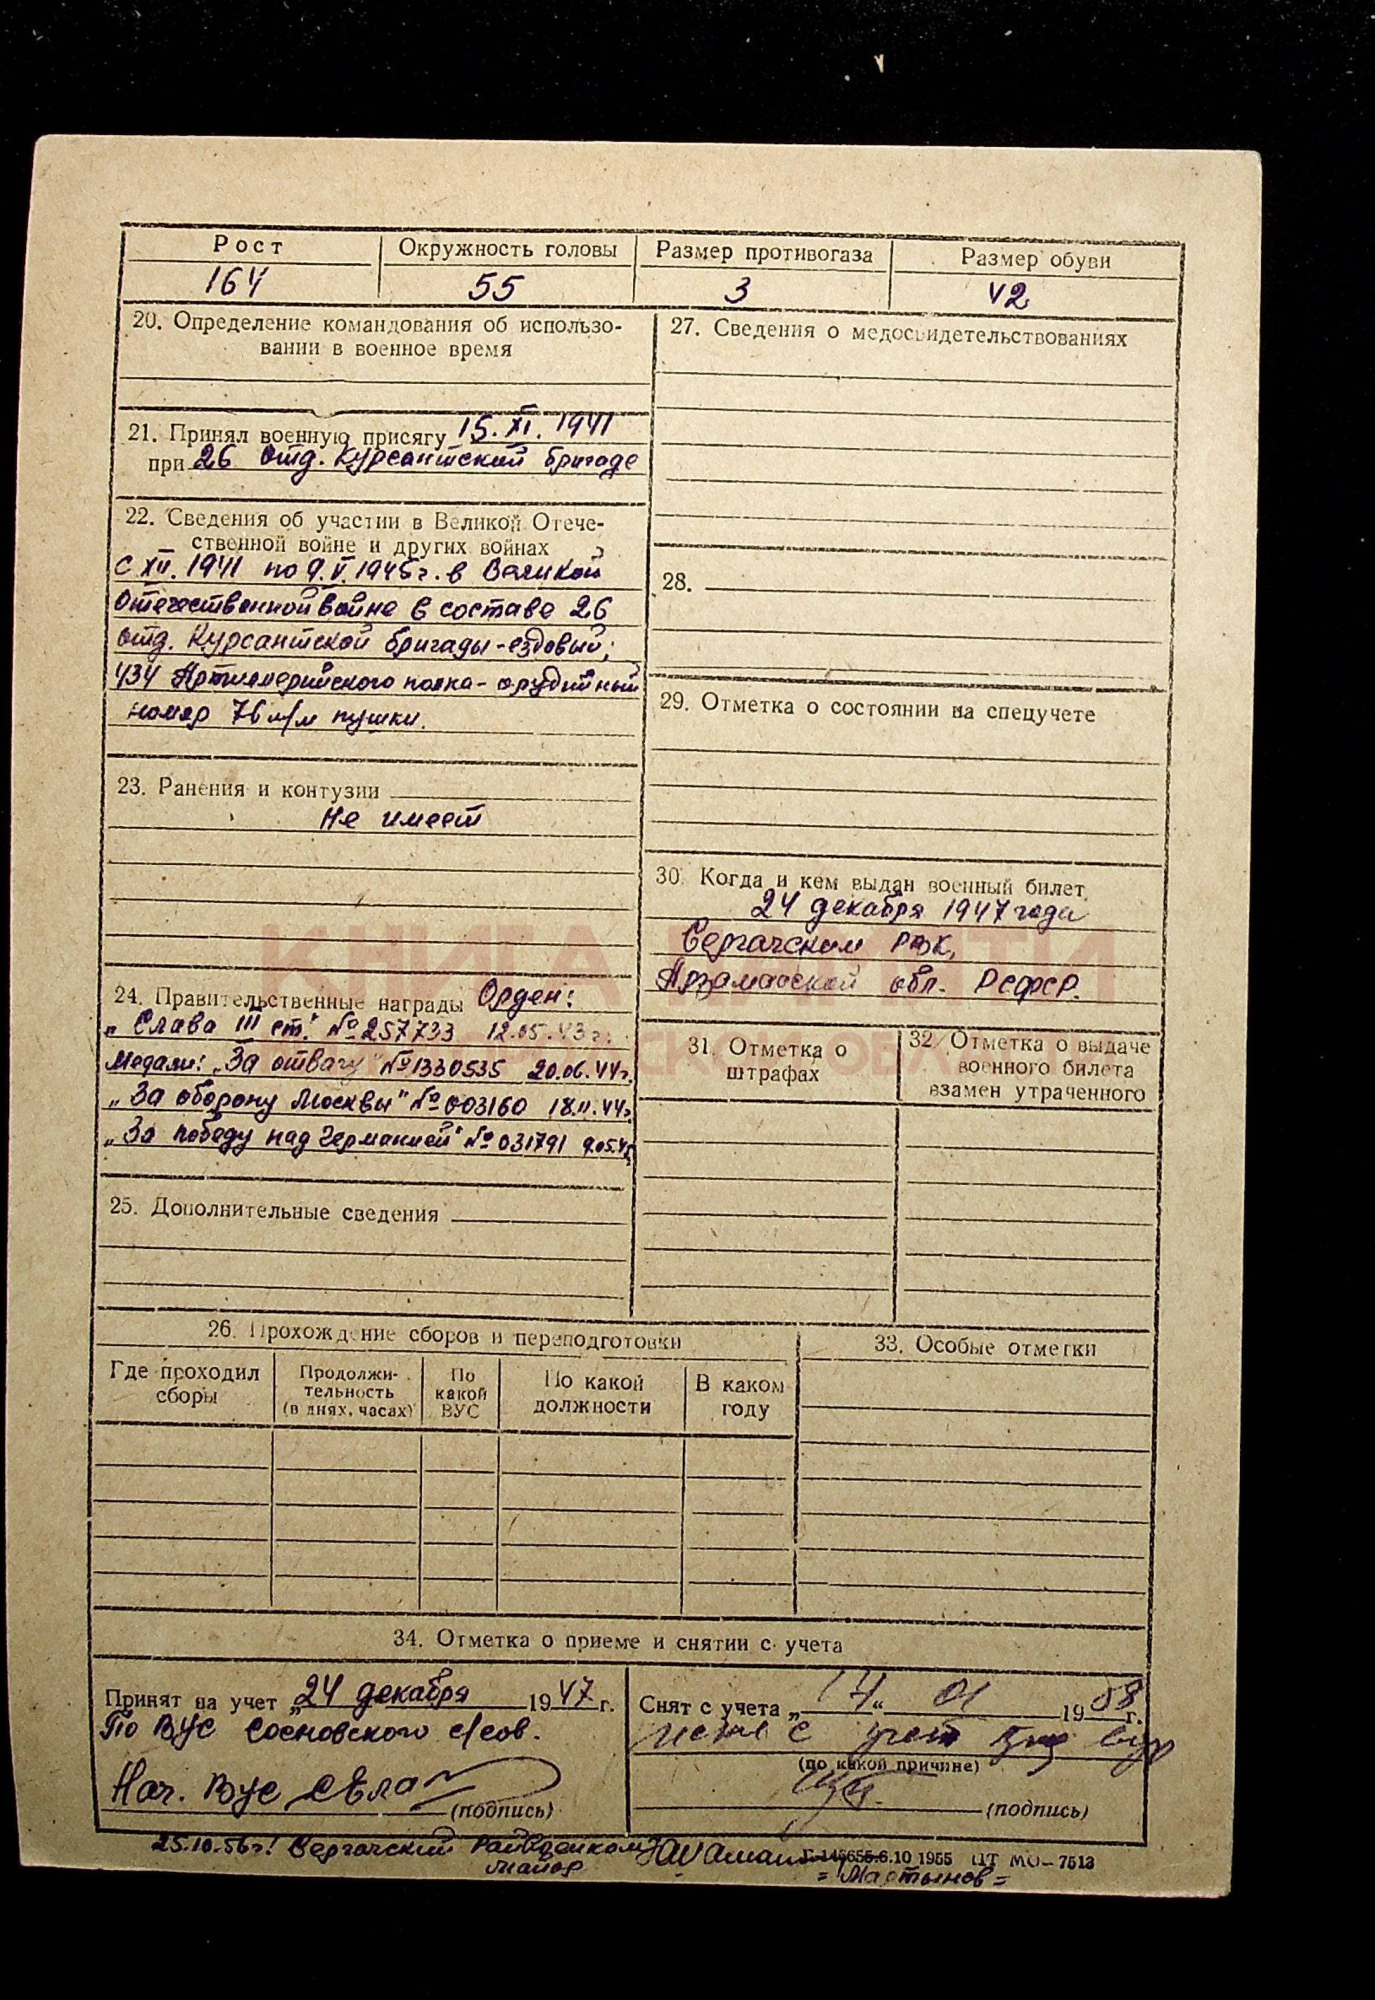 Рост Окружность головы Размер противогаза Размер обуви
164 55 3 42
20. Определение командования об использо-
вании в военное время
21. Принял военную присягу 15. XI. 1941
при 26 отд. Курсантской бригаде
22. Сведения об участии в Великой Отече-
ственной войне и других войнах
с XII. 1941 по 9.V.1945г. в Великой
Отечественной войне в составе 26
отд. Курсантской бригады - ездовый;
434 Артиллерийского полка - орудийный
номер 76 м/м пушки.
23. Ранения и контузии
Не имеет
24. Правительственные награды Орден:
„Слава III ст." № 257733 12.05.43г.
Медали: „За отвагу" № 1330535 20.06.44г.
„За оборону Москвы" № 003160 18.11.44г.
„За победу над Германией" № 031791 9.05.45
25. Дополнительные сведения
27. Сведения о медосвидетельствованиях
28.
29. Отметка о состоянии на спецучете
30. Когда и кем выдан военный билет
24 декабря 1947 года
Сергачским РВК,
Арзамасской обл. РСФСР.
КНИГА ПАМЯТИ
31. Отметка о
штрафах
32. Отметка о выдаче
военного билета
взамен утраченного
26. Прохождение сборов и переподготовки
Где проходил
сборы
Продолжи-
тельность
(в днях, часах)
По
какой
ВУС
По какой
должности
В каком
году
33. Особые отметки
34. Отметка о приеме и снятии с учета
Принят на учет „24 декабря 1947 г.
По ВУС Сосновского с/сов.
Нач. Вус
(подпись)
Снят с учета „ 01 19 г.
с
(по какой причине)
(подпись)
25.10.56г! Сергачский Райвоенком
майор
=Мартынов=
Г-146655.6.10 1955 ЦТ МО-7513